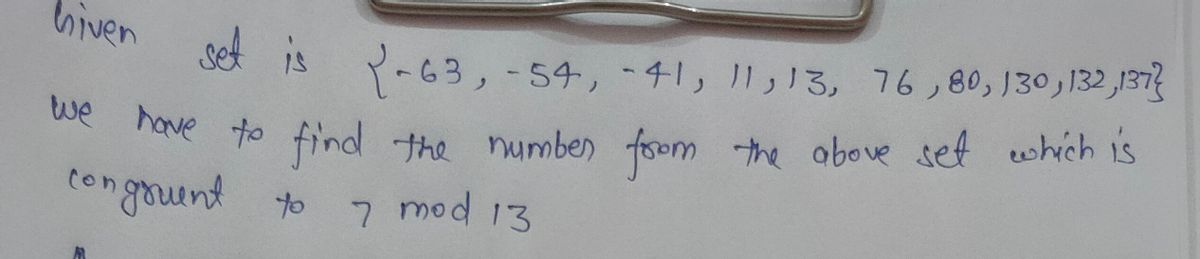 Given set is {-63, -54, -41, 11, 13, 76, 80, 130, 132, 137}
we have to find the number from the above set which is
congruent to 7 mod 13